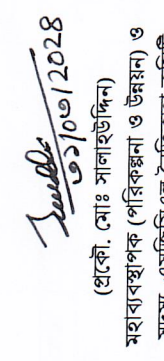 ৩১/০৩/২০২৪
(প্রকৌ. মোঃ সালাহউদ্দিন)
মহাব্যবস্থাপক (পরিকল্পনা ও উন্নয়ন) ও